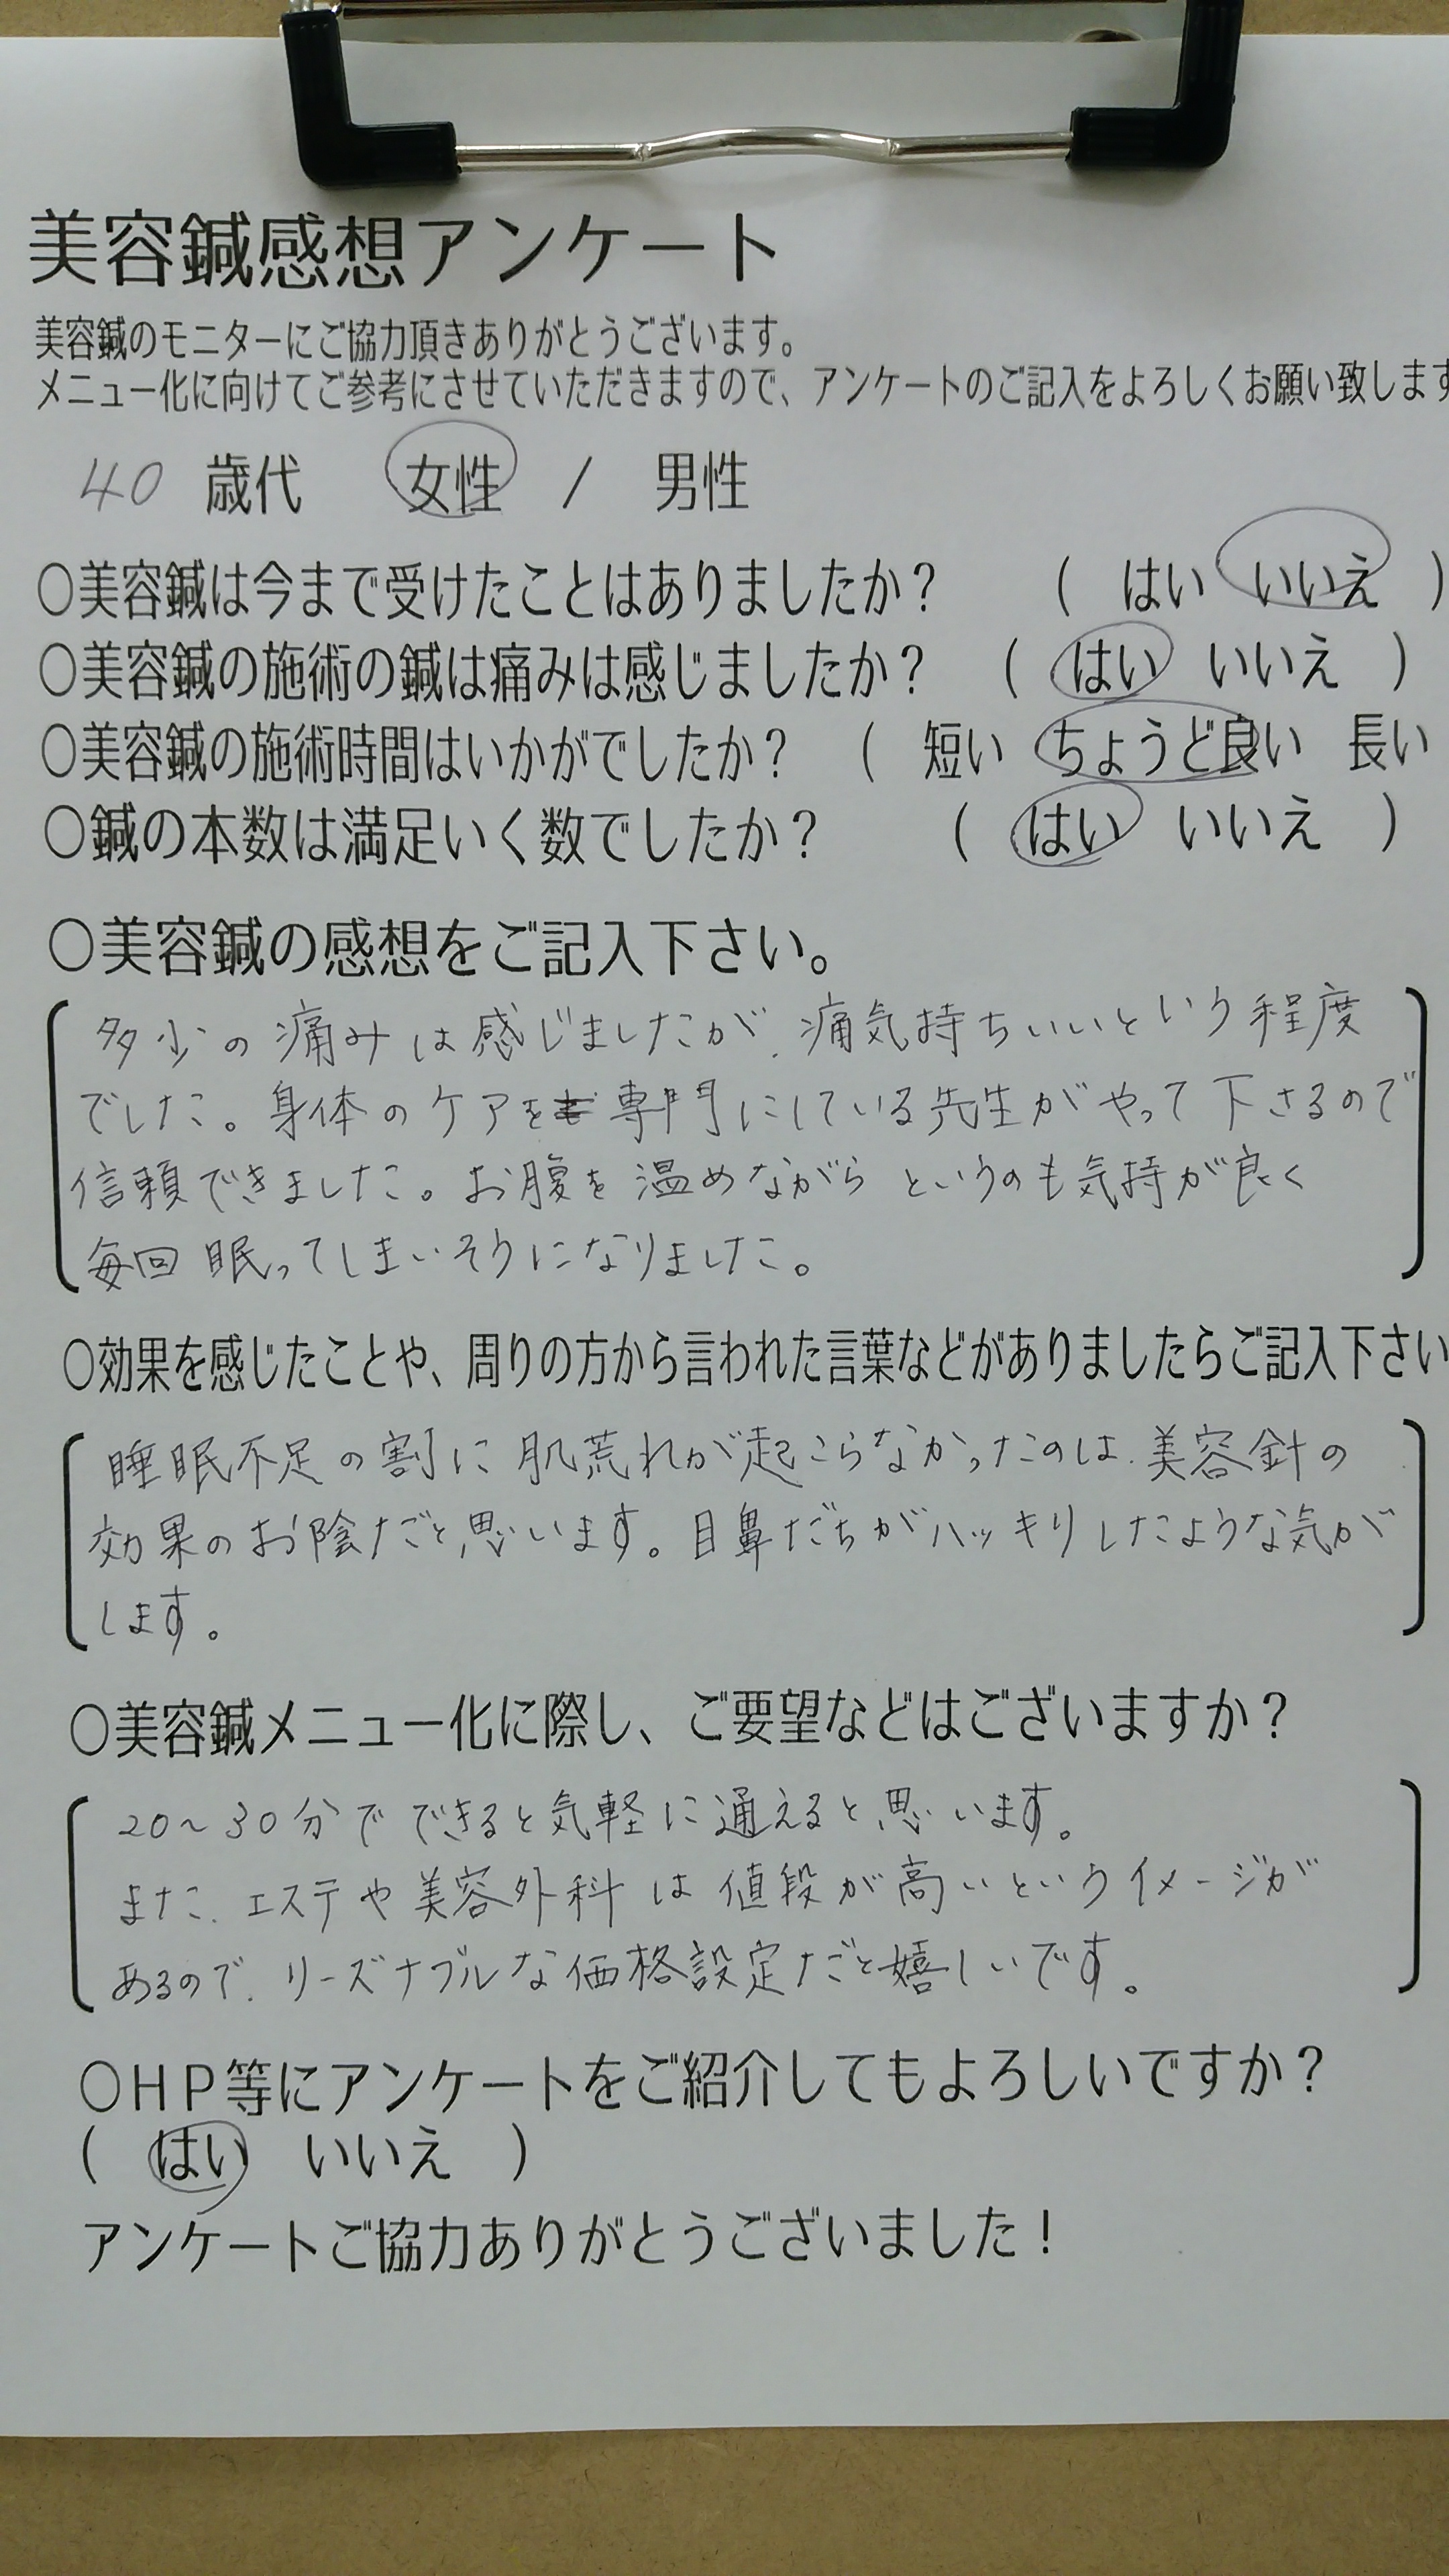 美容鍼感想アンケート
美容鍼のモニターにご協力頂きありがとうございます。
メニュー化に向けてご参考にさせていただきますので、アンケートのご記入をよろしくお願い致します
40 歳代 女性 / 男性
○美容鍼は今まで受けたことはありましたか？ ( はい いいえ )
○美容鍼の施術の鍼は痛みは感じましたか？ ( はい いいえ )
○美容鍼の施術時間はいかがでしたか？ ( 短い ちょうど良い 長い
○鍼の本数は満足いく数でしたか？ ( はい いいえ )
○美容鍼の感想をご記入下さい。
多少の痛みは感じましたが、痛気持ちいいという程度
でした。身体のケアを専門にしている先生がやって下さるので
信頼できました。お腹を温めながらというのも気持が良く
毎回眠ってしまいそうになりました。
○効果を感じたことや、周りの方から言われた言葉などがありましたらご記入下さい
睡眠不足の割に肌荒れが起こらなかったのは、美容針の
効果のお陰だと思います。目鼻だちがハッキリしたような気が
します。
○美容鍼メニュー化に際し、ご要望などはございますか？
20～30分でできると気軽に通えると思います。
また、エステや美容外科は値段が高いというイメージが
あるので、リーズナブルな価格設定だと嬉しいです。
○ＨＰ等にアンケートをご紹介してもよろしいですか？
( はい いいえ )
アンケートご協力ありがとうございました！